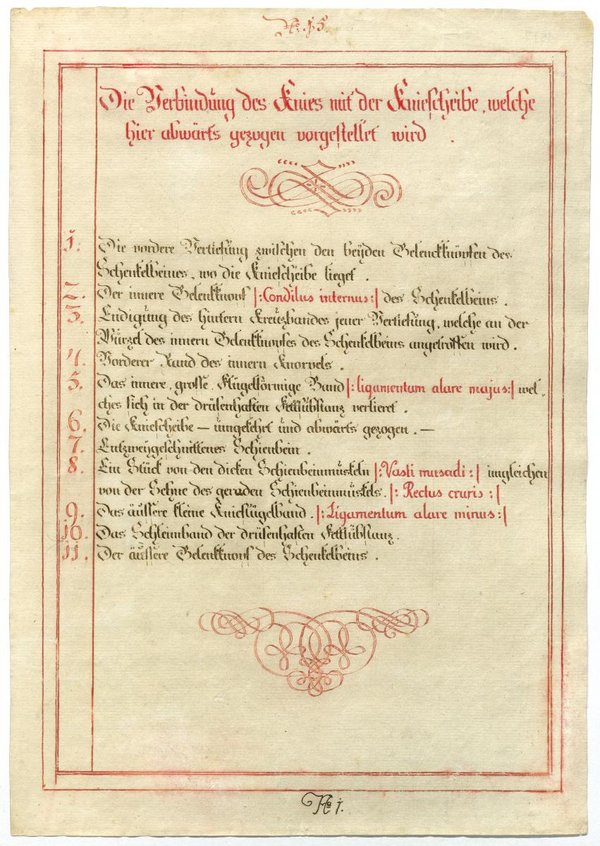 No. 15.
Die Verbindung des Knies mit der Kniescheibe, welche
hier abwärts gezogen vorgestellet wird .
1. Die vordere Vertiefung zwischen den beyden Gelenckknöpfen des
Schenkelbeines, wo die Kniescheibe lieget .
2. Der innere Gelenkknopf |: Condilus internus :| des Schenkelbeins .
3. Endigung des hintern Kreuzbandes jener Vertiefung, welche an der
Würzel des innern Gelenkknopfes des Schenkelbeins angetroffen wird .
4. Vorderer Rand des innern Knorpels .
5. Das innere, grosse, flügelförmige Band |: ligamentum alare majus :| wel-
ches sich in der drüsenhaften Fettsübstanz verlieret .
6. Die Kniescheibe — ümgekehrt und abwärts gezogen . —
7. Entzweygeschnittenes Schienbein .
8. Ein Stück von den dicken Schienbeinmüskeln |: Vasti mursadi :| imgleichen
von der Sehne des geraden Schienbeinmüskels . |: Rectus cruris :|
9. Das äüssere kleine Knieflügelband . |: Ligamentum alare minus :|
10. Das Schleimband der drüsenhaften Fettsübstanz .
11. Der äüssere Gelenkknopf des Schenkelbeins .
No 1.